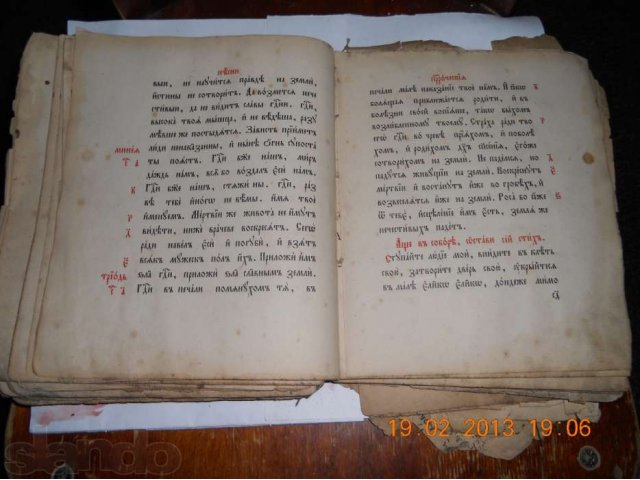 пѣсни
выи, не научитсѧ правдѣ на землѝ,
и҆стины не сотворитъ. Да возметсѧ нече
стивыи, да не видитъ славы гдⷭ҇ни. Гдⷭ҇и,
высока твоѧ мышца, и҆ не вѣдѣша, разꙋ
мѣвше же постыдѧтсѧ. Зависть прїиметъ
люди ненаказанны, и҆ нынѣ ѻ҆гнь сꙋпоста
ты поѧстъ. Гдⷭ҇и бж҃е нашъ, миръ
даждь намъ, всѧ бо воздалъ є҆си намъ.
Гдⷭ҇и бж҃е нашъ, стѧжи ны. гдⷭ҇и, раз
вѣ тебѐ и҆ного не вѣмы. и҆мѧ твоѐ
и҆менꙋемъ. Мертвїи же живота не и҆мꙋтъ
видѣти, нижѐ врачеве воскресѧтъ. Сего
ради навелъ є҆си и҆ погꙋби, и҆ взѧтъ
всѧкъ мꙋжескъ полъ и҆хъ. Приложи и҆мъ
ѕла гдⷭ҇и, приложи ѕла славнымъ землѝ.
Гдⷭ҇и въ печали помѧнꙋхомъ тѧ, въ
минїѧ
трїѡдь
пррⷪ҇ченїѧ
печали малѣ наказанїе твоѐ намъ. И҆ ꙗ҆кѡ
болѧщаѧ приближаетсѧ родити, и҆ въ
болѣзни своей воспїѧше, такѡ быхомъ
возлюбленномꙋ твоемꙋ. Страха ради тво
егѡ гдⷭ҇и во чревѣ прїѧхомъ, и҆ поболѣ
хомъ, и҆ родихомъ дꙋхъ спасенїѧ, є҆гѡже
сотворихомъ на земли. Не падемсѧ, но
падꙋтсѧ живꙋщїи на земли. Воскреснꙋтъ
мертвїи и҆ востанꙋтъ и҆же во гробѣхъ, и҆
возвеселѧтсѧ и҆же на земли. Роса бо ꙗ҆же
ѿ тебѐ, и҆сцѣленїе и҆мъ є҆сть, землѧ же
нечестивыхъ падетъ.
Аще въ соборѣ, ѡ҆стави сїй стихъ.
Стꙋпайте людїе мои, внидите въ клѣть
свою, затворите двѣрь свою, ᲂу҆крыйтесѧ
въ малѣ є҆ликѡ є҆ликѡ, дондеже мимо
19.02.2013 19:06
slando